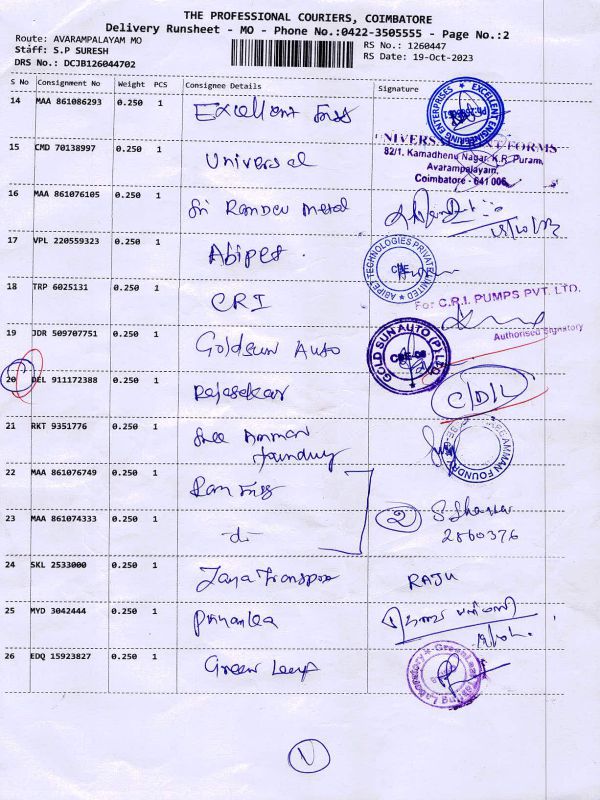 THE PROFESSIONAL COURIERS, COIMBATORE
Delivery Runsheet - MO - Phone No.:0422-3505555 - Page No.:2
Route: AVARAMPALAYAM MO
Staff: S.P SURESH
DRS No.: DCJB126044702
RS No.: 1260447
RS Date: 19-Oct-2023
S No Consignment No Weight PCS Consignee Details Signature
14 MAA 861086293 0.250 1 Excellent Engg
EXCELLENT ENGINEERING ENTERPRISES
15 CMD 70138997 0.250 1 Universal
82/1, Kamadhenu Nagar, K.R. Puram,
Avarampalayam,
Coimbatore - 641 006.
16 MAA 861076105 0.250 1 Sri Ramdev Metal
17 VPL 220559323 0.250 1 Abipet
ABIPET TECHNOLOGIES PRIVATE LIMITED
18 TRP 6025131 0.250 1 CRI
For C.R.I. PUMPS PVT. LTD.
Authorised Signatory
19 JDR 509707751 0.250 1 Goldsun Auto
GOLD SUN AUTO (P) LTD
20 DEL 911172388 0.250 1 Rajasekar
C/D/L
21 RKT 9351776 0.250 1 Sree Amman
Foundry
22 MAA 861076749 0.250 1 Ram Engg
23 MAA 861074333 0.250 1 -d-
2
2860376
24 SKL 2533000 0.250 1 Jaya Transpor RAJU
25 MYD 3042444 0.250 1 Priyanka
26 EDQ 15923827 0.250 1 Green Leep